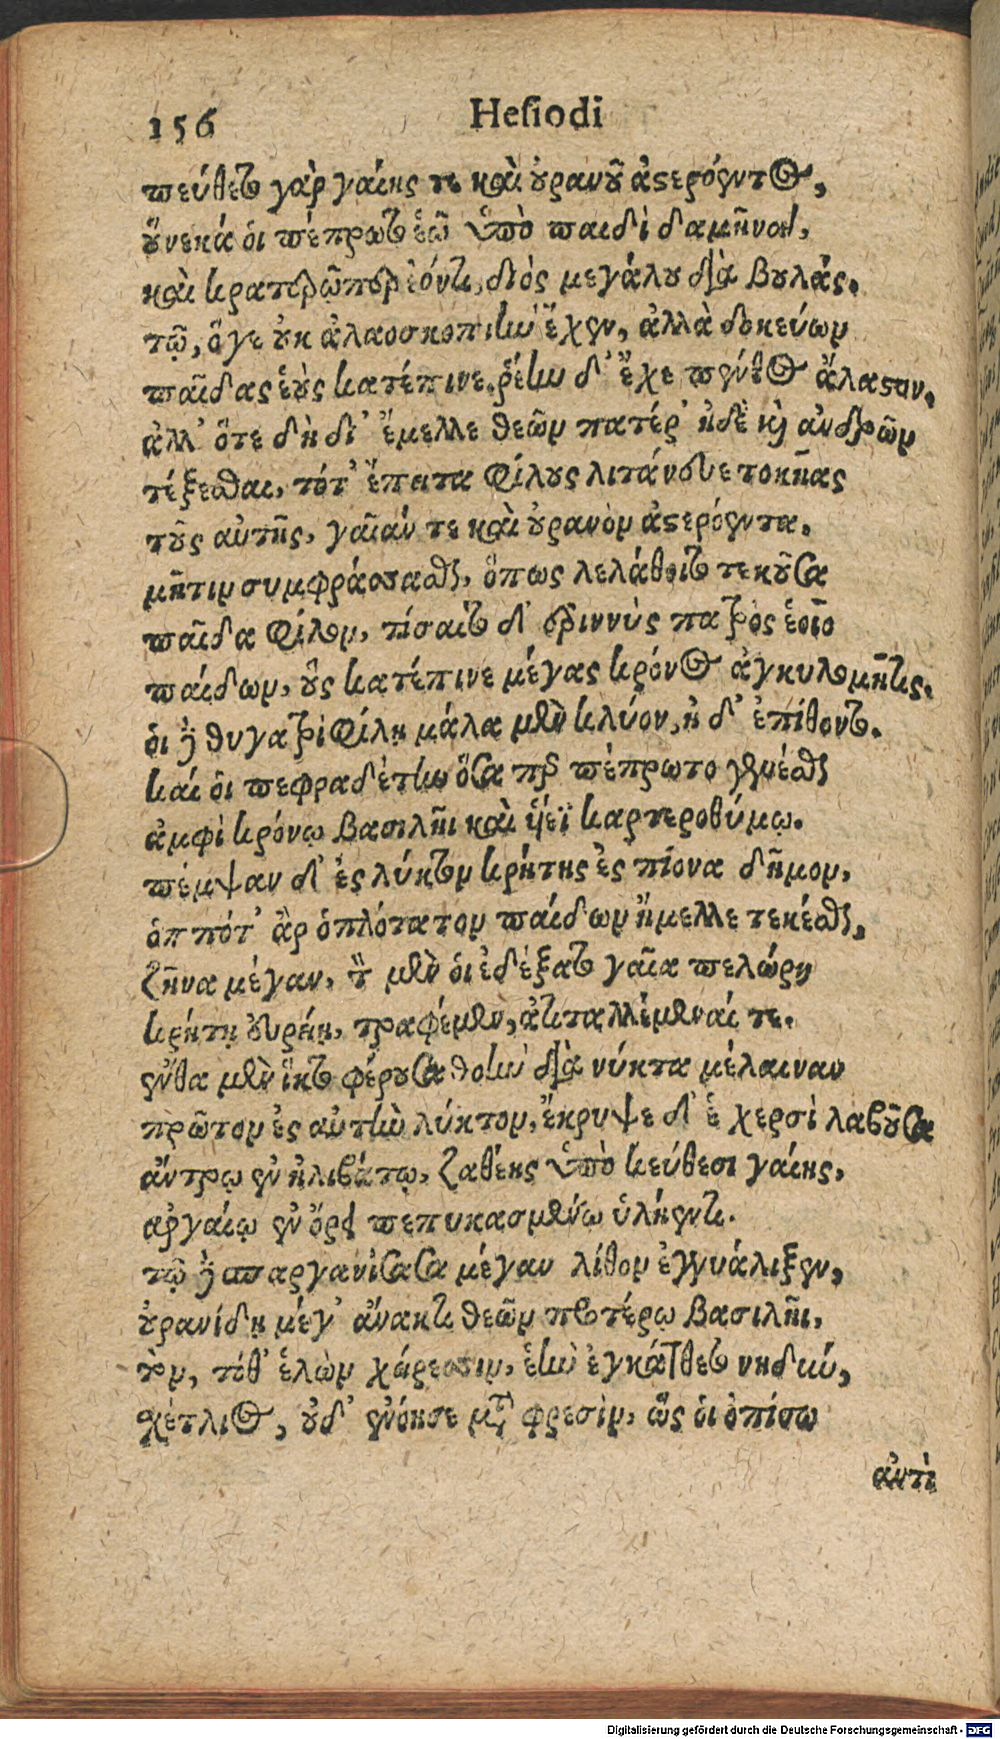 156 Hesiodi
πεύθετο γὰρ γαίης τε καὶ ὐρανοῦ ἀστερόεντος,
οὕνεκά ὁι πέπρωτο ἑῷ ὑπὸ παιδὶ δαμῆναι,
καὶ κρατερῷ περ ἐόντι, διὸς μεγάλου διὰ βουλάς.
τῷ, ὅγε οὐκ ἀλαοσκοπιὴν ἔχεν, ἀλλὰ δοκεύων
παῖδας ἑοὺς κατέπινε. ῥέην δ' ἔχε πένθος ἄλαστον.
ἀλλ' ὅτε δὴ δί' ἔμελλε θεῶν πατέρ' ἠδὲ καὶ ἀνδρῶν
τέξεσθαι, τότ' ἔπειτα φίλους λιτάνευε τοκῆας
τοὺς αὐτῆς, γαῖάν τε καὶ οὐρανὸν ἀστερόεντα.
μῆτιν συμφράσσασθαι, ὅπως λελάθοιτο τεκοῦσα
παῖδα φίλον, τίσαιτο δ' ἐριννὺς πατρὸς ἑοῖο
παίδων, οὓς κατέπινε μέγας κρόνος ἀγκυλομήτις.
ὁι δὲ θυγατρὶ φίλῃ μάλα μὲν κλύον, ἠδ' ἐπίθοντο.
καί ὁι πεφραδέτην ὅσα περ πέπρωτο γενέσθαι
ἀμφὶ κρόνῳ βασιλῆι καὶ ὑιέϊ καρτεροθύμῳ.
πέμψαν δ' ἐς λύκτον κρήτης ἐς πίονα δῆμον,
ὁππότ' ἂρ ὁπλότατον παίδων ἤμελλε τεκέσθαι,
ζῆνα μέγαν, τὸν μὲν ὁι ἐδέξατο γαῖα πελώρη
κρήτῃ ἐν εὐρείῃ, τραφέμεν, ἀτιταλλέμεναί τε.
ἔνθα μὲν ἷκτο φέρουσα θοὴν διὰ νύκτα μέλαιναν
πρῶτον ἐς αὐτὴν λύκτον, ἔκρυψε δ' ἑ χερσὶ λαβοῦσα
ἄντρῳ ἐν ἠλιβάτῳ, ζαθέης ὑπὸ κεύθεσι γαίης,
αἰγαίῳ ἐν ὄρει πεπυκασμένῳ ὑλήεντι.
τῷ δὲ σπαργανίσασα μέγαν λίθον ἐγγυάλιξεν,
οὐρανίδῃ μέγ' ἄνακτι θεῶν προτέρῳ βασιλῆι,
τὸν, τόθ' ἑλὼν χείρεσσιν, ἑὴν ἐγκάτθετο νηδύν,
σχέτλιος, οὐδ' ἐνόησε μετὰ φρεσὶν, ὥς ὁι ὀπίσω
ἀντὶ
Digitalisierung gefördert durch die Deutsche Forschungsgemeinschaft - DFG